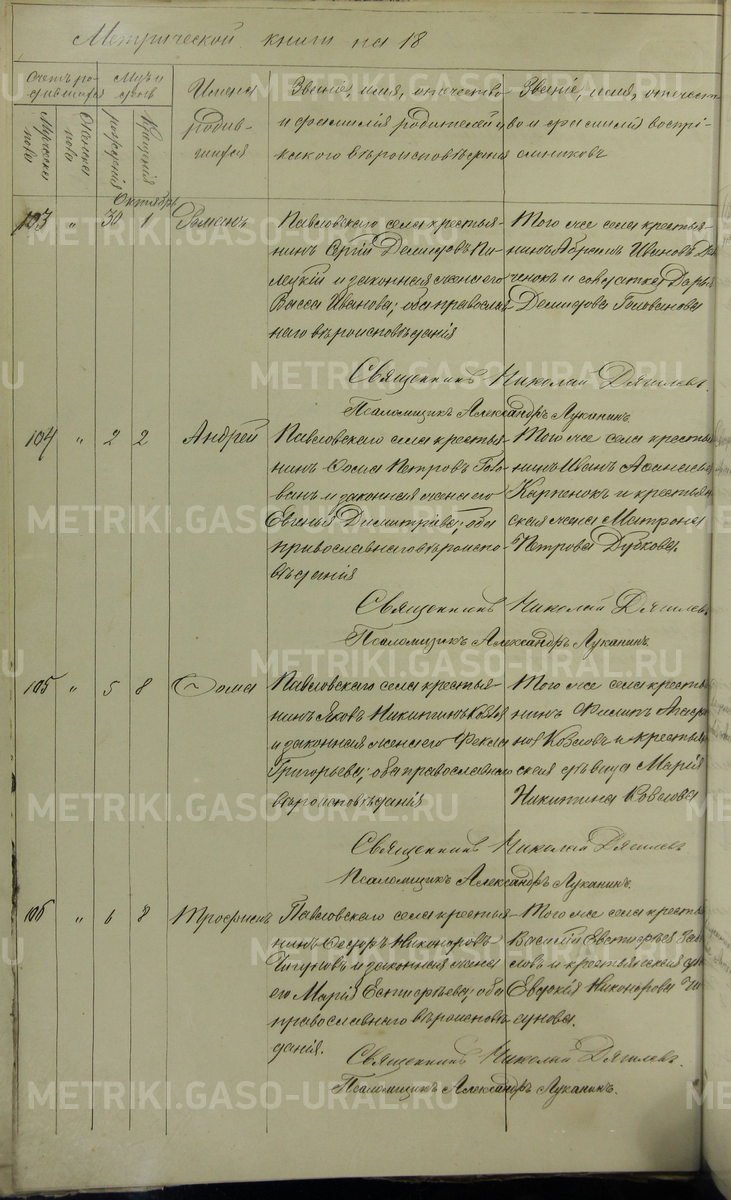 Метрической книги на 18
Счетъ родившихся
Мужеска пола
Женска пола
Мѣсяцъ и день
рожденія
Крещенія
Имена родившихся
Званіе, имя, отчество
и фамилія родителей и
какого вѣроисповѣданія
Званіе, имя, отчест
во и фамилія воспрі-
емниковъ
Октябрь
103 " 30 1 Романъ
Павловскаго села крестья-
нинъ Сергій Демидовъ
и законная жена его
Васса Иванова; оба православ-
наго вѣроисповѣданія
Того же села крестья-
нинъ Абрамъ Ивановъ
и солдатка Дарья
Демидова Голованова
Священникъ Николай Дягилевъ.
Псаломщикъ Александръ Луканинъ.
104 " 2 2 Андрей
Павловскаго села крестья-
нинъ Фома Петровъ Голо-
ванъ и законная жена его
Евгенья Димитріева; оба
православнаго вѣроиспо-
вѣданія
Того же села крестья
нинъ Иванъ Афанасьев
Карпенок и крестьян
ская жена Матрона
Петрова Дубкова.
Священникъ Николай Дягилев.
Псаломщикъ Александръ Луканинъ.
105 " 5 8 Фома
Павловскаго села крестья-
нинъ Яковъ Никитинъ
и законная жена его Фекла
Григорьева; оба православнаго
вѣроисповѣданія
Того же села крестья
нинъ Филипъ
Козловъ и крестьян
ская дѣвица Марія
Никитина Козлова
Священникъ Николай Дягилевъ
Псаломщикъ Александръ Луканинъ.
106 " 6 8 Трофимъ
Павловскаго села крестья-
нинъ Федоръ Никоноровъ
Чигуновъ и законная жена
его Марія Естифѣева; оба
православнаго вѣроисповѣ-
данія.
Того же села крестья
Василій Евстифѣев
и крестьянская
Евдокія Никонорова Чи
гунова.
Священникъ Николай Дягилевъ.
Псаломщикъ Александръ Луканинъ.
METRIKI.GASO-URAL.RU